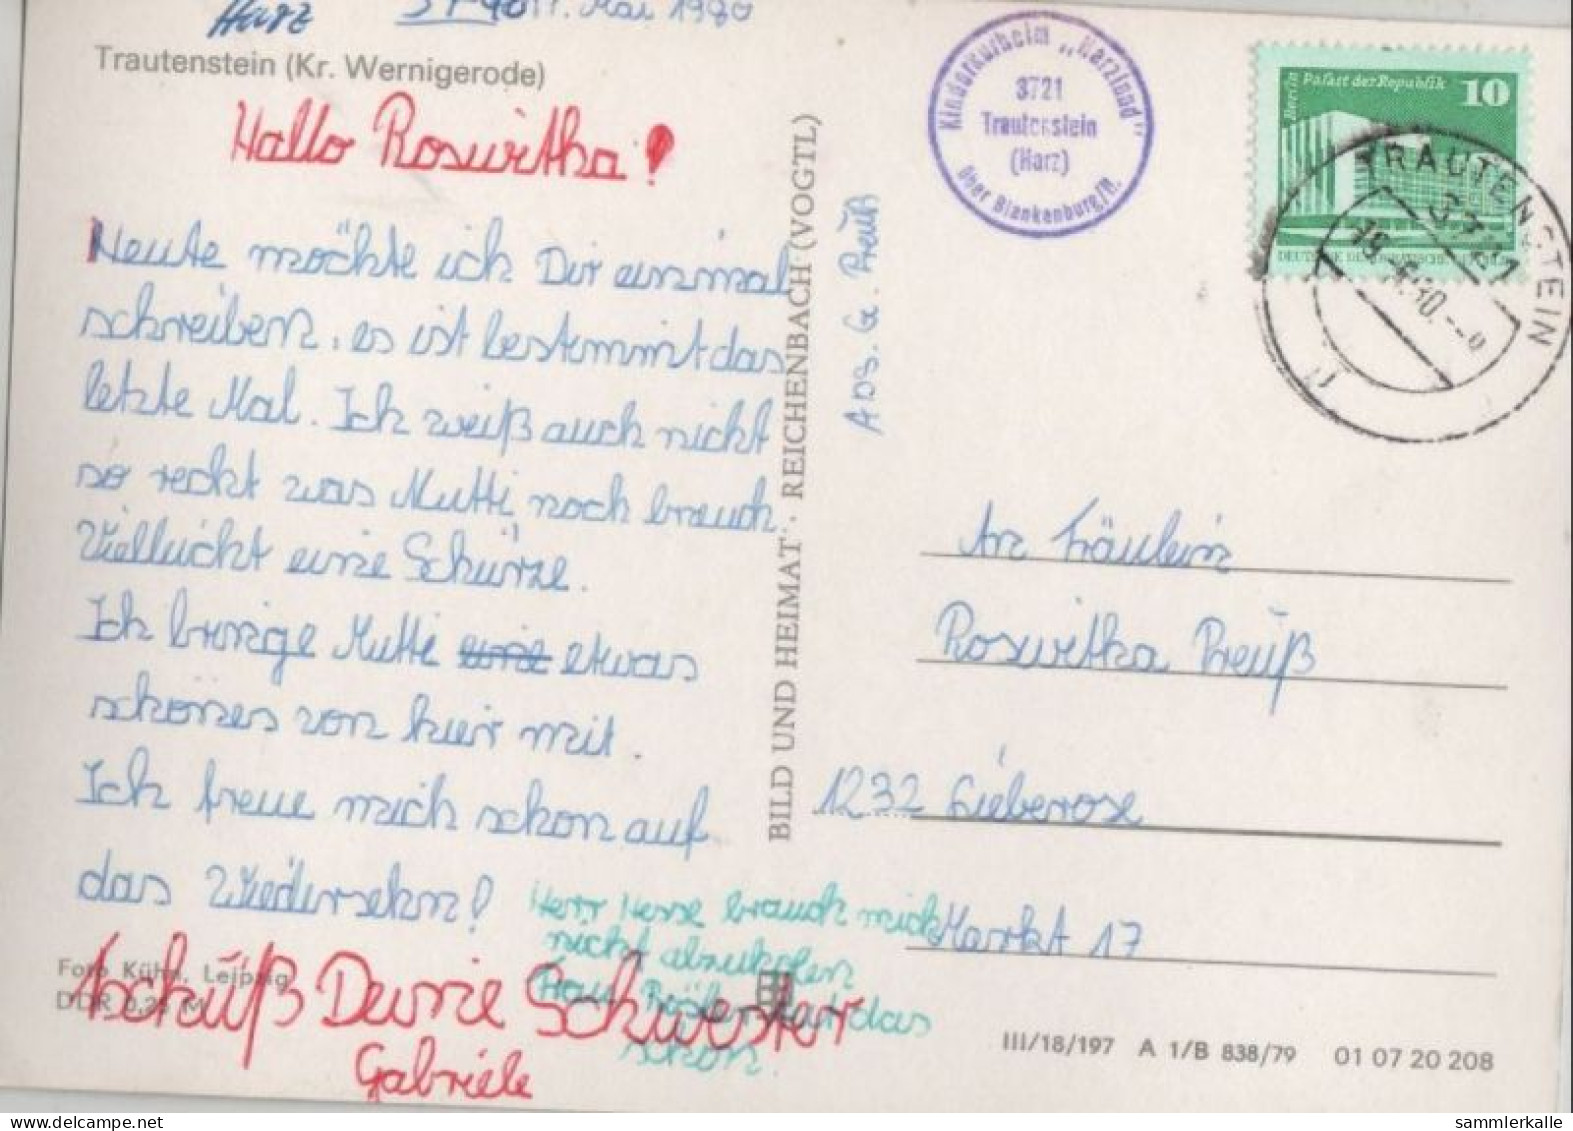 Harz 17. Mai 1980
Trautenstein (Kr. Wernigerode)
Hallo Roswitha!
Heute möchte ich Dir einmal
schreiben, es ist bestimmt das
letzte Mal. Ich weiß auch nicht
so recht was Mutti noch brauch.
Vielleicht eine Schürze.
Ich bringe Mutti eine etwas
schönes von hier mit.
Ich freue mich schon auf
das Wiedersehn!
Tschüß Deine Schwester
Gabriele
Herr Hesse brauch mich
nicht abzuholen
Frau hat das
schon.
Foto Kühn, Leipzig
DDR 0,25 M
BILD UND HEIMAT · REICHENBACH (VOGTL)
ABS. G. Preuß
Kinderkurheim „Harzland"
3721
Trautenstein
(Harz)
über Blankenburg/H.
Berlin Palast der Republik 10
DEUTSCHE DEMOKRATISCHE REPUBLIK
TRAUTENSTEIN
3721
An Fräulein
Roswitha Preuß
1232 Lieberose
Markt 17
III/18/197 A 1/B 838/79 01 07 20 208
sammlerkalle